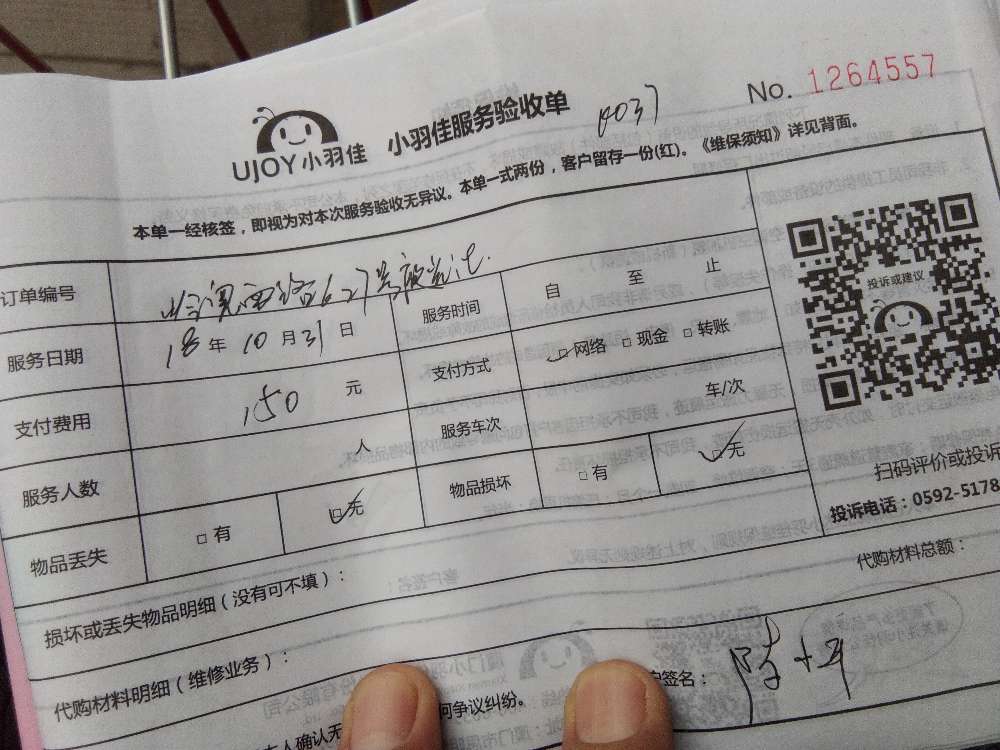 No. 1264557
UJOY小羽佳 小羽佳服务验收单 4037
本单一经核签，即视为对本次服务验收无异议。本单一式两份，客户留存一份(红)。《维保须知》详见背面。
订单编号
服务时间 自 至 止
服务日期 18 年 10 月 31 日
支付方式 网络 现金 转账
支付费用 150 元
服务车次 车/次
服务人数 人
物品损坏 有 无
物品丢失 有 无
投诉或建议
扫码评价或投诉
投诉电话：0592-5178
损坏或丢失物品明细（没有可不填）：
代购材料总额：
代购材料明细（维修业务）：
户签名：
本人确认无
何争议纠纷。